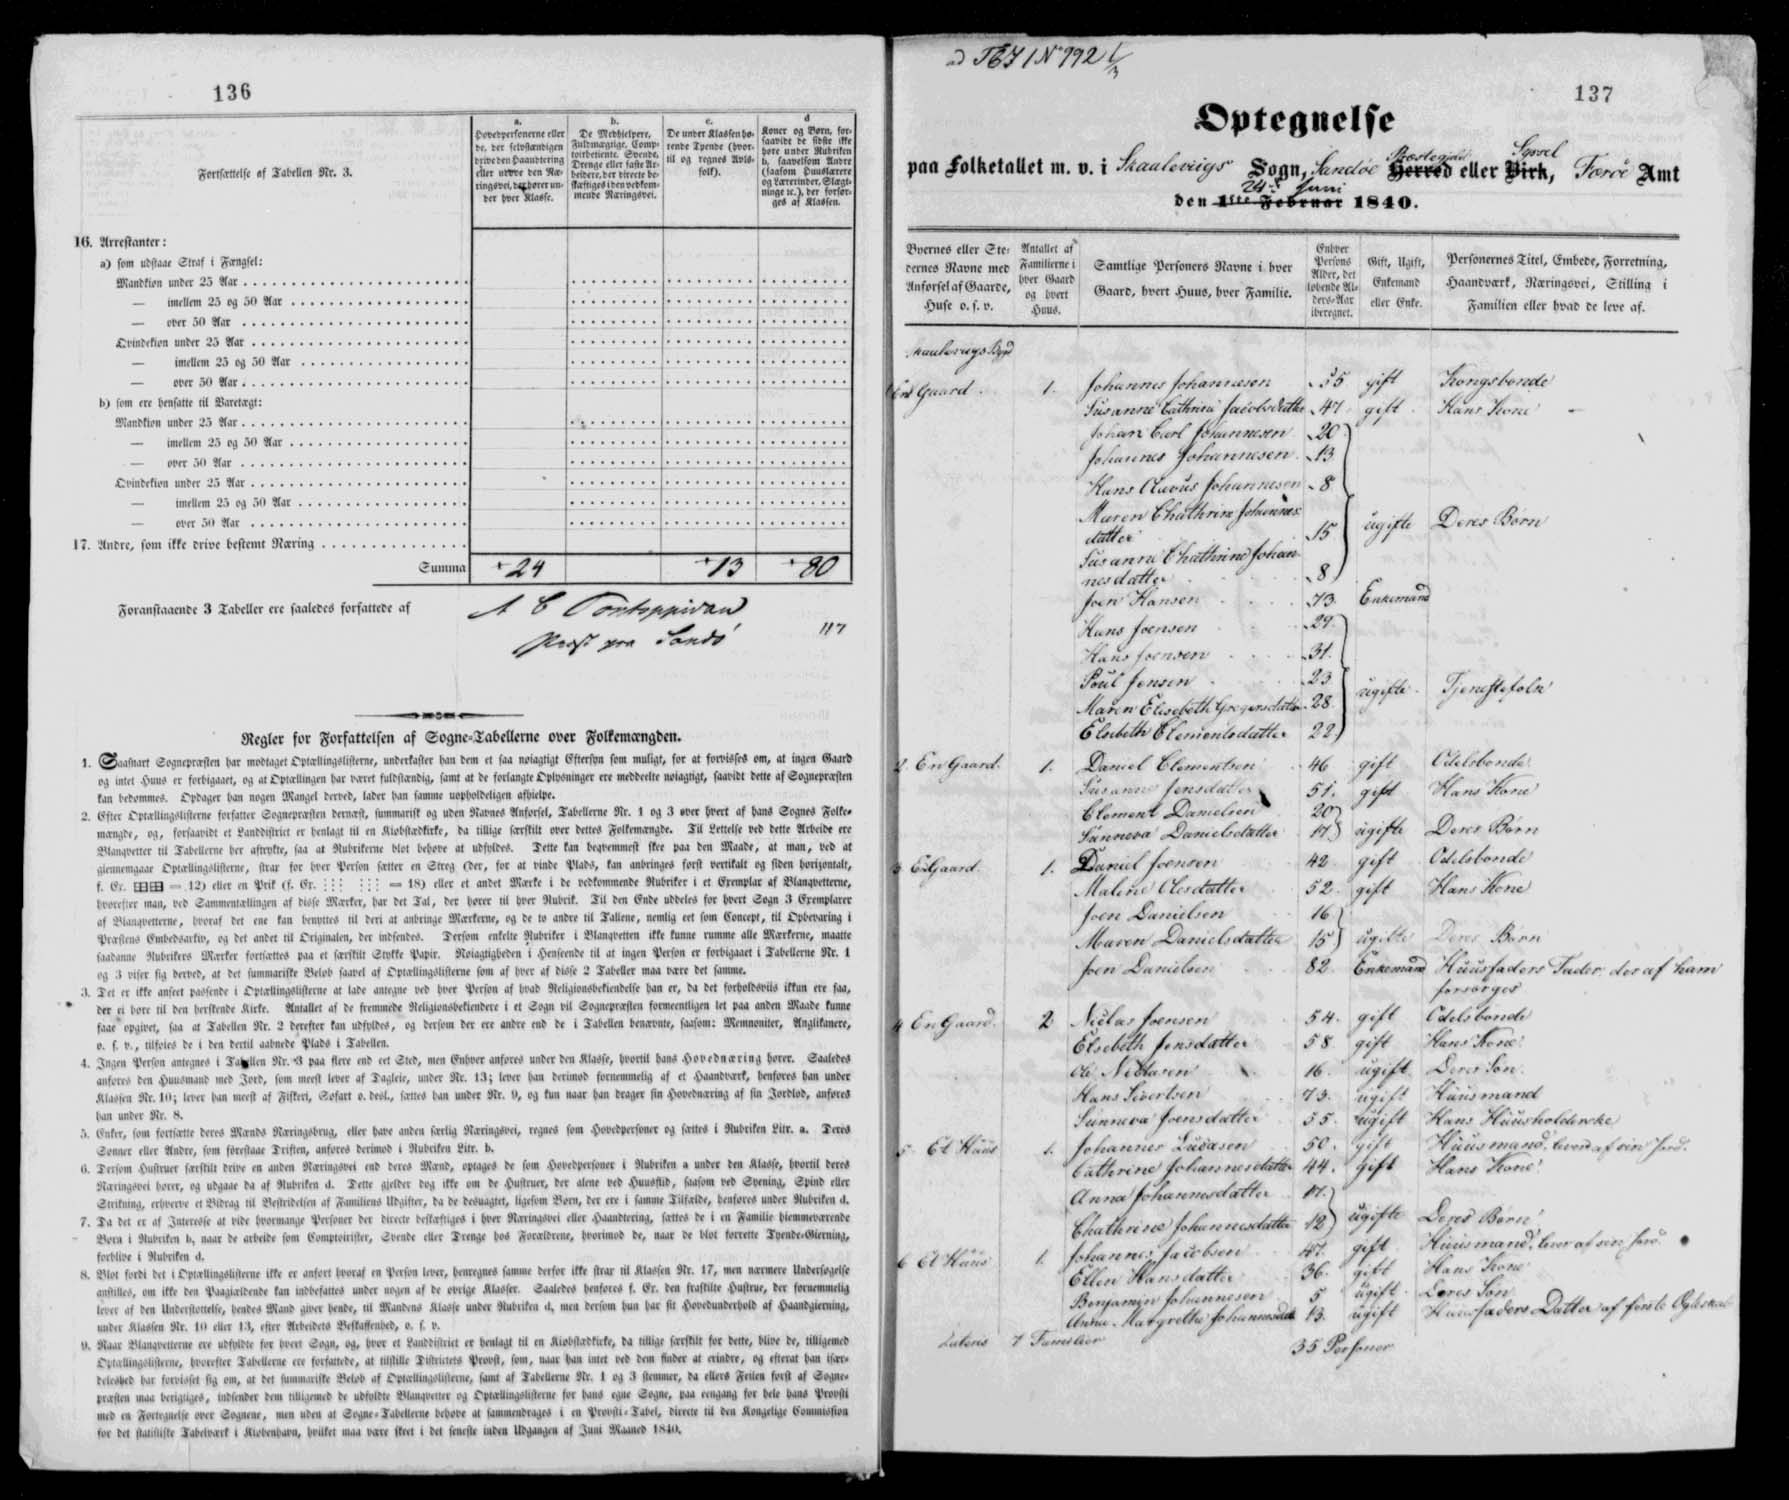 136
Fortsættelse af Tabellen Nr. 3.
a.
Hovedpersonerne eller
de, der selvstændigen
drive den Haandtering
eller udøve den Næ-
ringsvei, der hører un-
der hver Klasse.
b.
De Medhielpere,
Fuldmægtige, Comp-
toirbetiente, Svende,
Drenge eller faste Ar-
beidere, der directe be-
skæftiges i den vedkom-
mende Næringsvei.
c.
De under Klassen hø-
rende Tyende (hvor-
til og regnes Avls-
folk).
d
Koner og Børn, for-
saavidt de sidste ikke
høre under Rubriken
b, saavelsom Andre
(saasom Huuslærere
og Lærerinder, Slægt-
ninge ꝛc.), der forsør-
ges af Klassen.
16. Arrestanter:
a) som udstaae Straf i Fængsel:
Mandkiøn under 25 Aar
— imellem 25 og 50 Aar
— over 50 Aar
Qvindekiøn under 25 Aar
— imellem 25 og 50 Aar
— over 50 Aar
b) som ere hensatte til Varetægt:
Mandkiøn under 25 Aar
— imellem 25 og 50 Aar
— over 50 Aar
Qvindekiøn under 25 Aar
— imellem 25 og 50 Aar
— over 50 Aar
17. Andre, som ikke drive bestemt Næring
Summa 24 13 80
Foranstaaende 3 Tabeller ere saaledes forfattede af A C Pontoppidan
Præst paa Sandö 117
Regler for Forfattelsen af Sogne-Tabellerne over Folkemængden.
1. Saasnart Sognepræsten har modtaget Optællingslisterne, underkaster han dem et saa nøiagtigt Eftersyn som muligt, for at forvisses om, at ingen Gaard
og intet Huus er forbigaaet, og at Optællingen har været fuldstændig, samt at de forlangte Oplysninger ere meddeelte nøiagtigt, saavidt dette af Sognepræsten
kan bedømmes. Opdager han nogen Mangel derved, lader han samme uopholdeligen afhielpe.
2. Efter Optællingslisterne forfatter Sognepræsten dernæst, summarisk og uden Navnes Anførsel, Tabellerne Nr. 1 og 3 over hvert af hans Sognes Folke-
mængde, og, forsaavidt et Landdistrict er henlagt til en Kiøbstædkirke, da tillige særskilt over dettes Folkemængde. Til Lettelse ved dette Arbeide ere
Blanqvetter til Tabellerne her aftrykte, saa at Rubrikerne blot behøve at udfyldes. Dette kan beqvemmest skee paa den Maade, at man, ved at
giennemgaae Optællingslisterne, strax for hver Person sætter en Streg (der, for at vinde Plads, kan anbringes først vertikalt og siden horizontalt,
f. Ex. = 12) eller en Prik (f. Ex. = 18) eller et andet Mærke i de vedkommende Rubriker i et Exemplar af Blanqvetterne,
hvorefter man, ved Sammentællingen af disse Mærker, har det Tal, der hører til hver Rubrik. Til den Ende uddeles for hvert Sogn 3 Exemplarer
af Blanqvetterne, hvoraf det ene kan benyttes til deri at anbringe Mærkerne, og de to andre til Tallene, nemlig eet som Concept, til Opbevaring i
Præstens Embedsarkiv, og det andet til Originalen, der indsendes. Dersom enkelte Rubriker i Blanqvetten ikke kunne rumme alle Mærkerne, maatte
saadanne Rubrikers Mærker fortsættes paa et særskilt Stykke Papir. Nøiagtigheden i Henseende til at ingen Person er forbigaaet i Tabellerne Nr. 1
og 3 viser sig derved, at det summariske Beløb saavel af Optællingslisterne som af hver af disse 2 Tabeller maa være det samme.
3. Det er ikke anseet passende i Optællingslisterne at lade antegne ved hver Person af hvad Religionsbekiendelse han er, da det forholdsviis ikkun ere faa,
der ei høre til den herskende Kirke. Antallet af de fremmede Religionsbekiendere i et Sogn vil Sognepræsten formeentligen let paa anden Maade kunne
faae opgivet, saa at Tabellen Nr. 2 derefter kan udfyldes, og dersom der ere andre end de i Tabellen benævnte, saasom: Memnoniter, Anglikanere,
o. s. v., tilføies de i den dertil aabnede Plads i Tabellen.
4. Ingen Person antegnes i Tabellen Nr. 3 paa flere end eet Sted, men Enhver anføres under den Klasse, hvortil hans Hovednæring hører. Saaledes
anføres den Huusmand med Jord, som meest lever af Dagleie, under Nr. 13; lever han derimod fornemmelig af et Haandværk, henføres han under
Klassen Nr. 10; lever han meest af Fiskeri, Søfart o. desl., sættes han under Nr. 9, og kun naar han drager sin Hovednæring af sin Jordlod, anføres
han under Nr. 8.
5. Enker, som fortsætte deres Mænds Næringsbrug, eller have anden særlig Næringsvei, regnes som Hovedpersoner og sættes i Rubriken Litr. a. Deres
Sønner eller Andre, som forestaae Driften, anføres derimod i Rubriken Litr. b.
6. Dersom Hustruer særskilt drive en anden Næringsvei end deres Mænd, optages de som Hovedpersoner i Rubriken a under den Klasse, hvortil deres
Næringsvei hører, og udgaae da af Rubriken d. Dette gjelder dog ikke om de Hustruer, der alene ved Huusflid, saasom ved Syening, Spind eller
Strikning, erhverve et Bidrag til Bestridelsen af Familiens Udgifter, da de desuagtet, ligesom Børn, der ere i samme Tilfælde, henføres under Rubriken d.
7. Da det er af Interesse at vide hvormange Personer der directe beskæftiges i hver Næringsvei eller Haandtering, sættes de i en Familie hiemmeværende
Børn i Rubriken b, naar de arbeide som Comptoirister, Svende eller Drenge hos Forældrene, hvorimod de, naar de blot forrette Tyende-Gierning,
forblive i Rubriken d.
8. Blot fordi det i Optællingslisterne ikke er anført hvoraf en Person lever, henregnes samme derfor ikke strax til Klassen Nr. 17, men nærmere Undersøgelse
anstilles, om ikke den Paagiældende kan indbefattes under nogen af de øvrige Klasser. Saaledes henføres f. Ex. den fraskilte Hustrue, der fornemmelig
lever af den Understøttelse, hendes Mand giver hende, til Mandens Klasse under Rubriken d, men dersom hun har sit Hovedunderhold af Haandgierning,
under Klassen Nr. 10 eller 13, efter Arbeidets Beskaffenhed, o. s. v.
9. Naar Blanqvetterne ere udfyldte for hvert Sogn, og, hvor et Landdistrict er henlagt til en Kiøbstædkirke, da tillige særskilt for dette, blive de, tilligemed
Optællingslisterne, hvorefter Tabellerne ere forfattede, at tilstille Districtets Provst, som, naar han intet ved dem finder at erindre, og efterat han især-
deleshed har forvisset sig om, at det summariske Beløb af Optællingslisterne, samt af Tabellerne Nr. 1 og 3 stemmer, da ellers Feilen først af Sogne-
præsten maa berigtiges, indsender dem tilligemed de udfyldte Blanqvetter og Optællingslisterne for hans egne Sogne, paa eengang for hele hans Provsti
med en Fortegnelse over Sognene, men uden at Sogne-Tabellerne behøve at sammendrages i en Provsti-Tabel, directe til den Kongelige Commission
for det statistiske Tabelværk i Kiøbenhavn, hvilket maa være skeet i det seneste inden Udgangen af Juni Maaned 1840.
137
Optegnelse
paa Folketallet m. v. i Skaaleveigs Sogn, Sandöe Præstegield Herred eller Birk, Syssel Færöe Amt
den 1ste Februar 24de Juni 1840.
Byernes eller Ste-
dernes Navne med
Anførsel af Gaarde,
Huse o. s. v.
Antallet af
Familierne i
hver Gaard
og hvert
Huus.
Samtlige Personers Navne i hver
Gaard, hvert Huus, hver Familie.
Enhver
Persons
Alder, det
løbende Al-
ders-Aar
iberegnet.
Gift, Ugift,
Enkemand
eller Enke.
Personernes Titel, Embede, Forretning,
Haandværk, Næringsvei, Stilling i
Familien eller hvad de leve af.
Skaaleveigs Bygd
En Gaard. 1. Johannes Johannesen 55 gift Kongsbonde
Susanne Cathrine Jacobsdatter 47 gift Hans Kone
Johan Carl Johannesen 20
Johannes Johannesen 13
Hans Clavus Johannesen 8
Maren Chathrine Johannes-
datter 15 ugifte Deres Børn
Susanne Chathrine Johan-
nesdatter 8
Joen Hansen 73 Enkemand
Hans Joensen 29
Hans Joensen 31
Poul Jensen 23
Maren Elisebeth Gregersdatter 28 ugifte Tjenestefolk
Elsebeth Clementsdatter 22
2. En Gaard. 1. Daniel Clementsen 46 gift Odelsbonde
Susanne Jensdatter 51 gift Hans Kone
Clement Danielsen 20
Sunneva Danielsdatter 17 ugifte Deres Børn
3 En Gaard. 1. Daniel Joensen 42 gift Odelsbonde
Malene Olesdatter 52 gift Hans Kone
Joen Danielsen 16
Maren Danielsdatter 15 ugifte Deres Børn
Joen Danielsen 82 Enkemand Huusfaders Fader, der af ham
forsørges
4 En Gaard. 2 Niclas Joensen 54 gift Odelsbonde
Elsebeth Jensdatter 58 gift Hans Kone
Ole Niclasen 16 ugift Deres Søn
Hans Sivertsen 73 ugift Huusmand
Sunneva Joensdatter 55 ugift Hans Huusholderske
5 Et Huus 1. Johannes Lucasen 50 gift Huusmand, lever af sin Jord.
Cathrine Johannesdatter 44 gift Hans Kone
Anna Johannesdatter 17
Chathrine Johannesdatter 12 ugifte Deres Børn
6 Et Huus 1. Johannes Jacobsen 47 gift Huusmand, lever af sin Jord.
Ellen Hansdatter 36 gift Hans Kone
Benjamin Johannesen 5 ugift Deres Søn
Anna Margrethe Johannesdatter 13 ugift Huusfaders Datter af første Ægteskab
Lateris 7 Familier 35 Personer